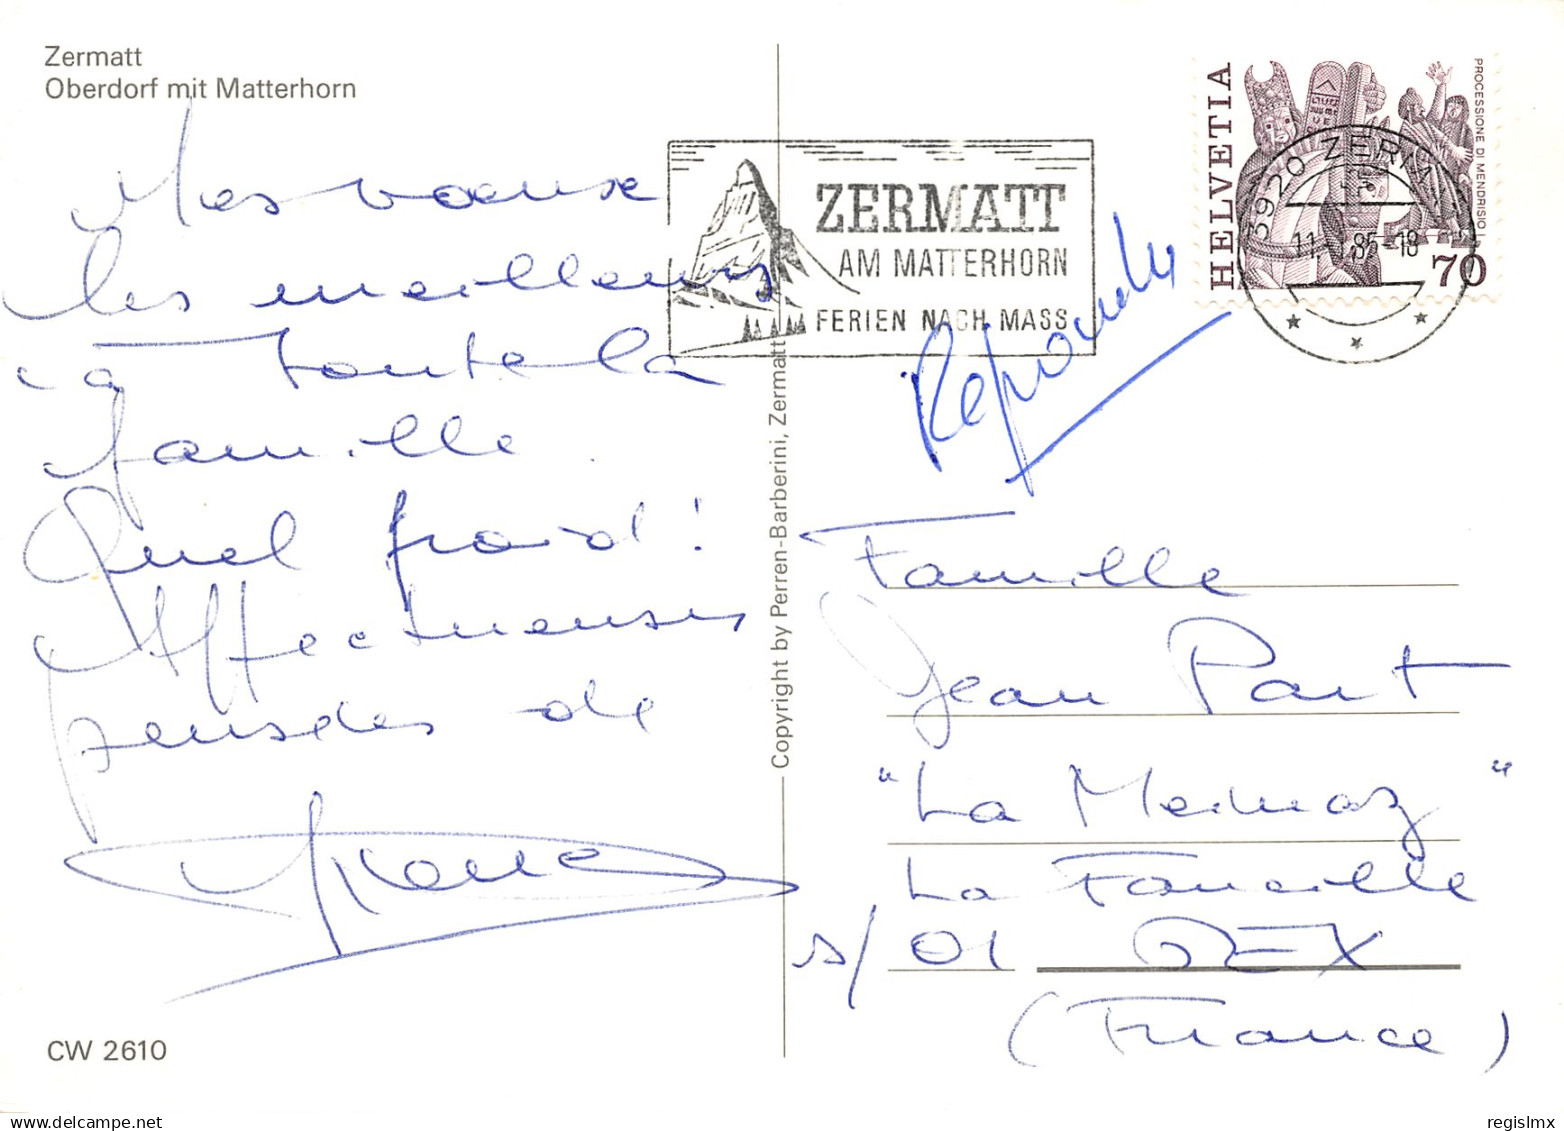 Zermatt
Oberdorf mit Matterhorn
Mes voeux
les meilleurs
à toute la
famille.
Quel froid !
Affectueuses
pensées de
CW 2610
Copyright by Perren-Barberini, Zermatt
ZERMATT
AM MATTERHORN
FERIEN NACH MASS
HELVETIA
PROCESSIONE DI MENDRISIO
70
3920 ZERMATT
11. 85-18
Famille
Jean Part
"La Mainaz"
La Faucille
s/ 01 GEX
(France)
regislmx